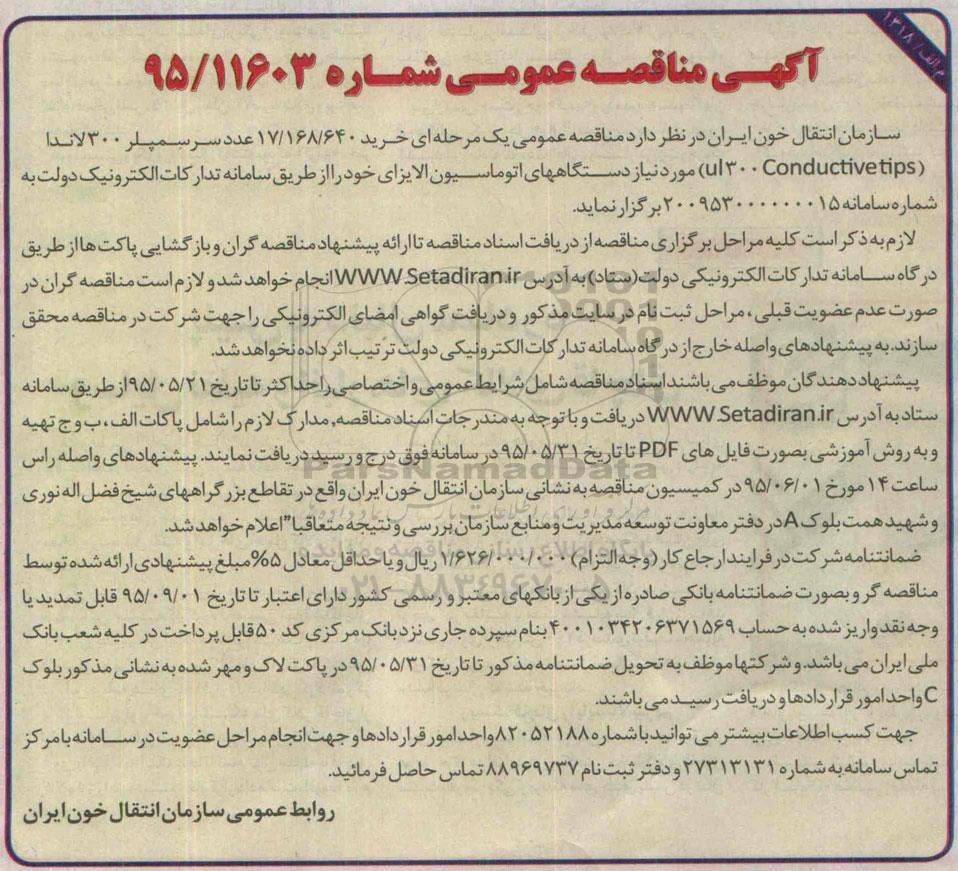 م الف/ ۱۳۱۸
آگهـی مناقصـه عمومـی شمـاره ۹۵/۱۱۶۰۳
سـازمان انتقال خون ایـران در نظر دارد مناقصه عمومی یک مرحله ای خرید ۱۷/۱۶۸/۶۴۰ عدد سـر سـمپلـر ۳۰۰ لاندا
(ul ۳۰۰ Conductive tips) مورد نیاز دسـتگاههای اتوماسـیون الایزای خود را از طریق سامانه تدارکات الکترونیک دولت به
شماره سامانه ۲۰۰۹۵۳۰۰۰۰۰۰۰۱۵ برگزار نماید.
لازم به ذکر است کلیه مراحل برگزاری مناقصه از دریافت اسناد مناقصه تا ارائه پیشنهاد مناقصه گران و بازگشایی پاکت ها از طریق
درگاه سـامانه تدارکات الکترونیکی دولت (ستاد) به آدرس WWW.Setadiran.ir انجام خواهد شد و لازم است مناقصه گران در
صورت عدم عضویت قبلی، مراحل ثبت نام در سایت مذکور و دریافت گواهی امضای الکترونیکی را جهت شرکت در مناقصه محقق
سازند. به پیشنهادهای واصله خارج از درگاه سامانه تدارکات الکترونیکی دولت ترتیب اثر داده نخواهد شد.
پیشنهاد دهندگان موظف می باشند اسناد مناقصه شامل شرایط عمومی و اختصاصی را حداکثر تا تاریخ ۹۵/۰۵/۲۱ از طریق سامانه
ستاد به آدرس WWW.Setadiran.ir دریافت و با توجه به مندرجات اسناد مناقصه, مدارک لازم را شامل پاکات الف، ب و ج تهیه
و به روش آموزشی بصورت فایل های PDF تا تاریخ ۹۵/۰۵/۳۱ در سامانه فوق درج و رسید دریافت نمایند. پیشنهادهای واصله راس
ParsNamadData
ساعت ۱۴ مورخ ۹۵/۰۶/۰۱ در کمیسیون مناقصه به نشانی سازمان انتقال خون ایران واقع در تقاطع بزرگراههای شیخ فضل اله نوری
و شهید همت بلوک A در دفتر معاونت توسعه مدیریت و منابع سازمان بررسی و نتیجه متعاقبا" اعلام خواهد شد.
ضمانتنامه شرکت در فرایند ارجاع کار (وجه التزام) ۱/۶۲۶/۰۰۰/۰۰۰ ریال و یا حداقل معادل ۵% مبلغ پیشنهادی ارائه شده توسط
۰۲۱-۸۸۳۴۹۶۷۰-۵
مناقصه گر و بصورت ضمانتنامه بانکی صادره از یکی از بانکهای معتبر و رسمی کشور دارای اعتبار تا تاریخ ۹۵/۰۹/۰۱ قابل تمدید یا
وجه نقد واریز شده به حساب ۴۰۰۱۰۳۴۲۰۶۳۷۱۵۶۹ بنام سپرده جاری نزد بانک مرکزی کد ۵۰ قابل پرداخت در کلیه شعب بانک
ملی ایران می باشد. و شرکتها موظف به تحویل ضمانتنامه مذکور تا تاریخ ۹۵/۰۵/۳۱ در پاکت لاک و مهر شده به نشانی مذکور بلوک
C واحد امور قراردادها و دریافت رسید می باشند.
جهت کسب اطلاعات بیشتر می توانید با شماره ۸۲۰۵۲۱۸۸ واحد امور قراردادها و جهت انجام مراحل عضویت در سـامانه با مرکز
تماس سامانه به شماره ۲۷۳۱۳۱۳۱ و دفتر ثبت نام ۸۸۹۶۹۷۳۷ تماس حاصل فرمائید.
روابط عمومی سازمان انتقال خون ایران